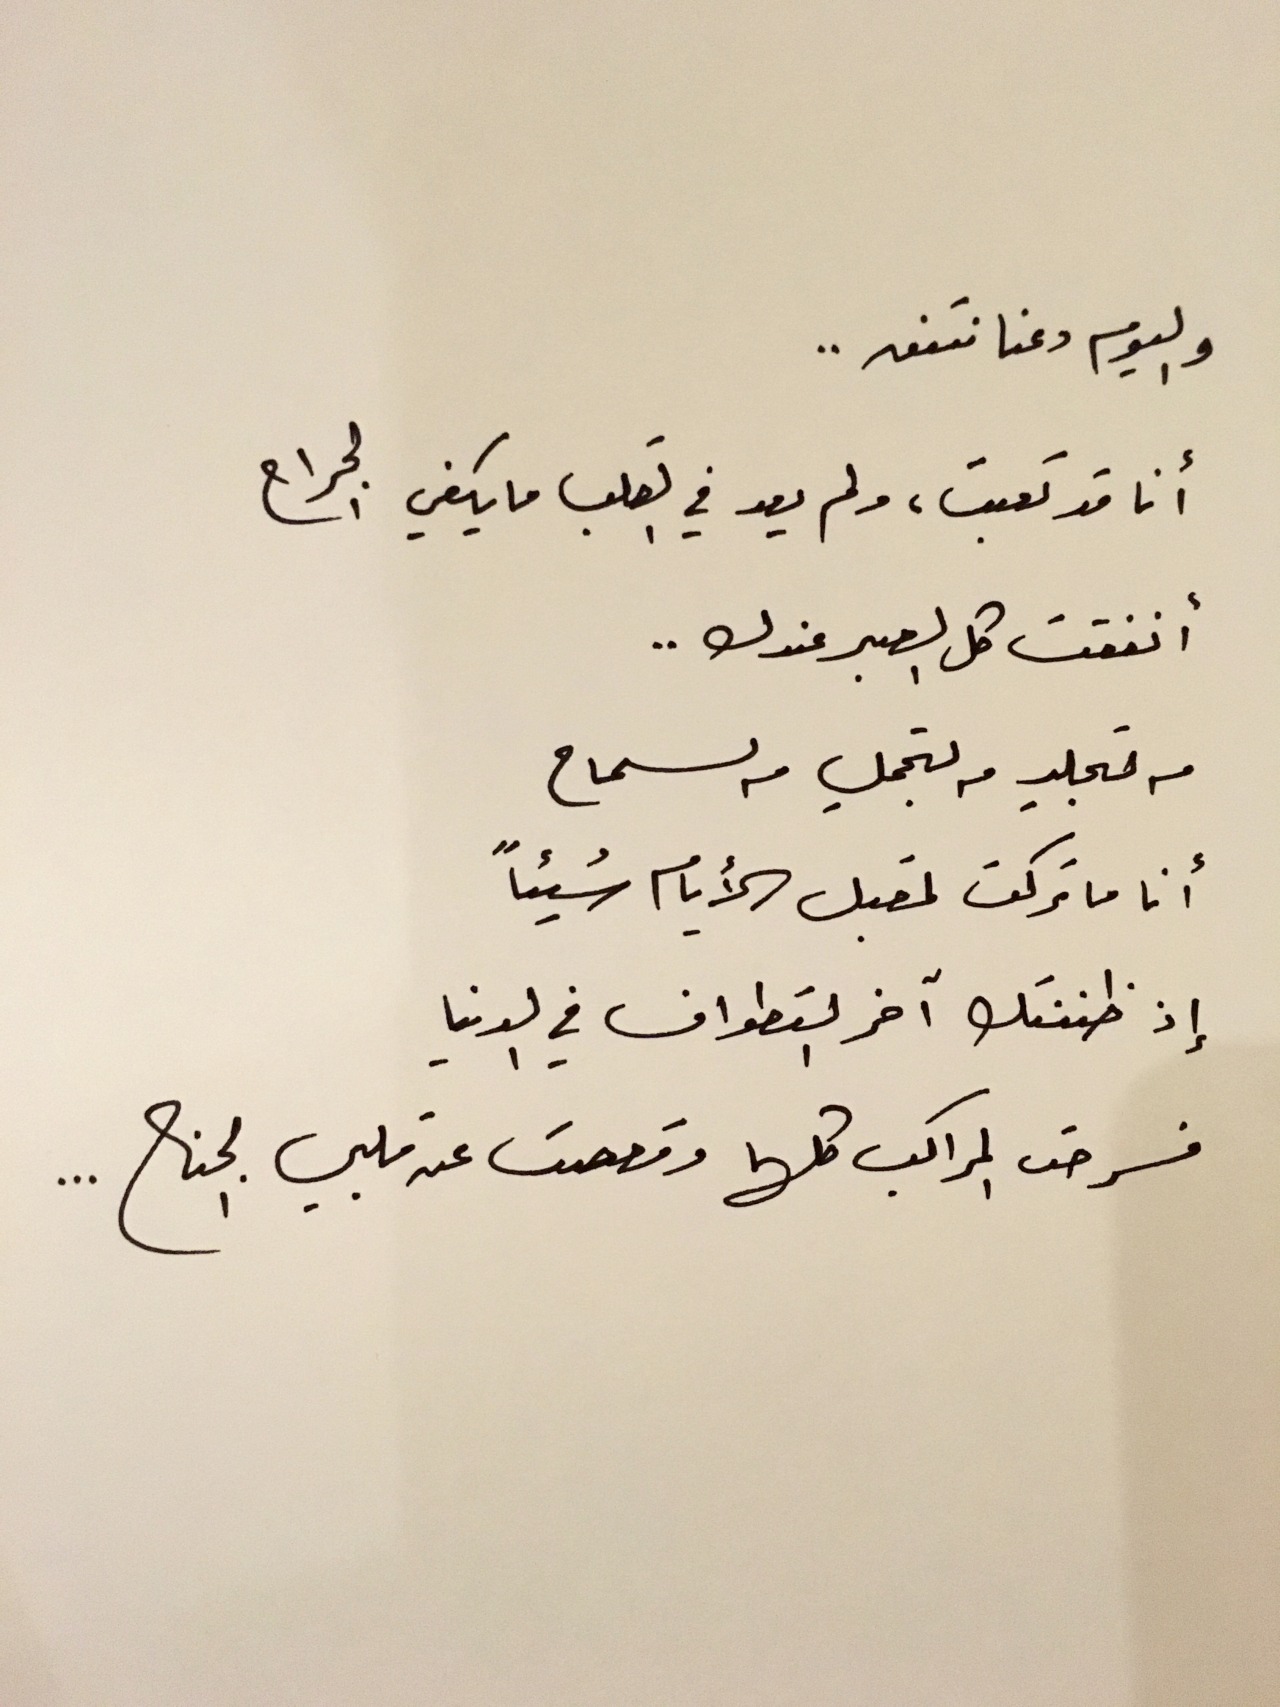 واليوم دعنا نتفق ..
أنا قد تعبت، ولم يعد في القلب ما يكفي الجراح
أنفقت كل الصبر عندك ..
من تجلدي من تجملي من سماح
أنا ما تركت لمقبل الأيام شيئاً
إذ ظننتك آخر التطواف في الدنيا
فسرحت المراكب كلها وقصصت عن قلبي الجناح ...